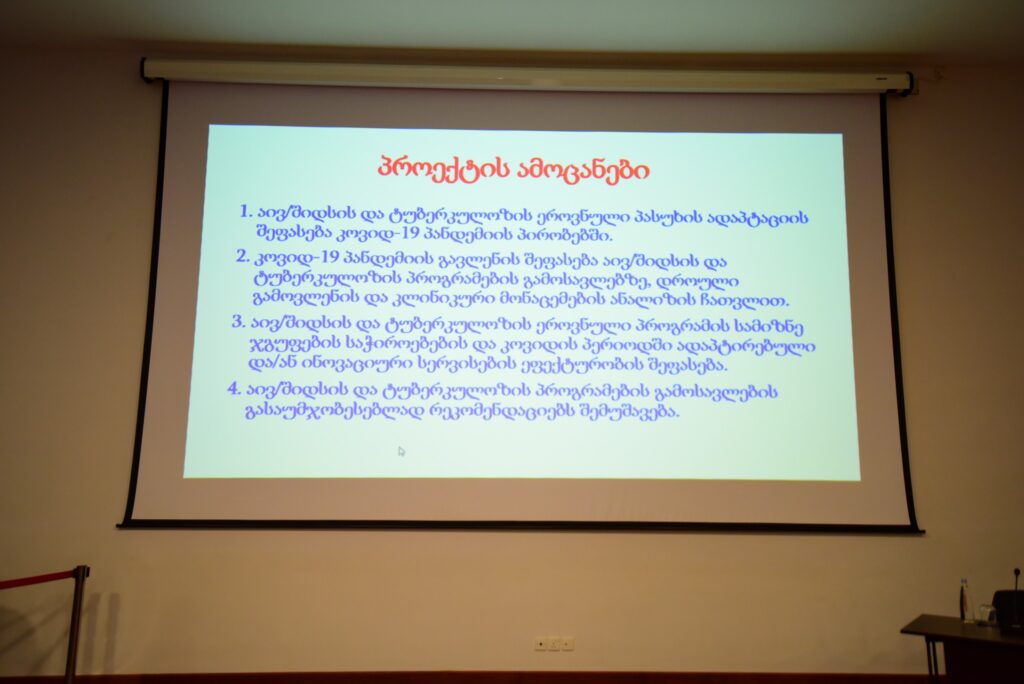 პროექტის ამოცანები
1. აივ/შიდსის და ტუბერკულოზის ეროვნული პასუხის ადაპტაციის
შეფასება კოვიდ-19 პანდემიის პირობებში.
2. კოვიდ-19 პანდემიის გავლენის შეფასება აივ/შიდსის და
ტუბერკულოზის პროგრამების გამოსავლებზე, დროული
გამოვლენის და კლინიკური მონაცემების ანალიზის ჩათვლით.
3. აივ/შიდსის და ტუბერკულოზის ეროვნული პროგრამის სამიზნე
ჯგუფების საჭიროებების და კოვიდის პერიოდში ადაპტირებული
და/ან ინოვაციური სერვისების ეფექტურობის შეფასება.
4. აივ/შიდსის და ტუბერკულოზის პროგრამების გამოსავლების
გასაუმჯობესებლად რეკომენდაციებს შემუშავება.